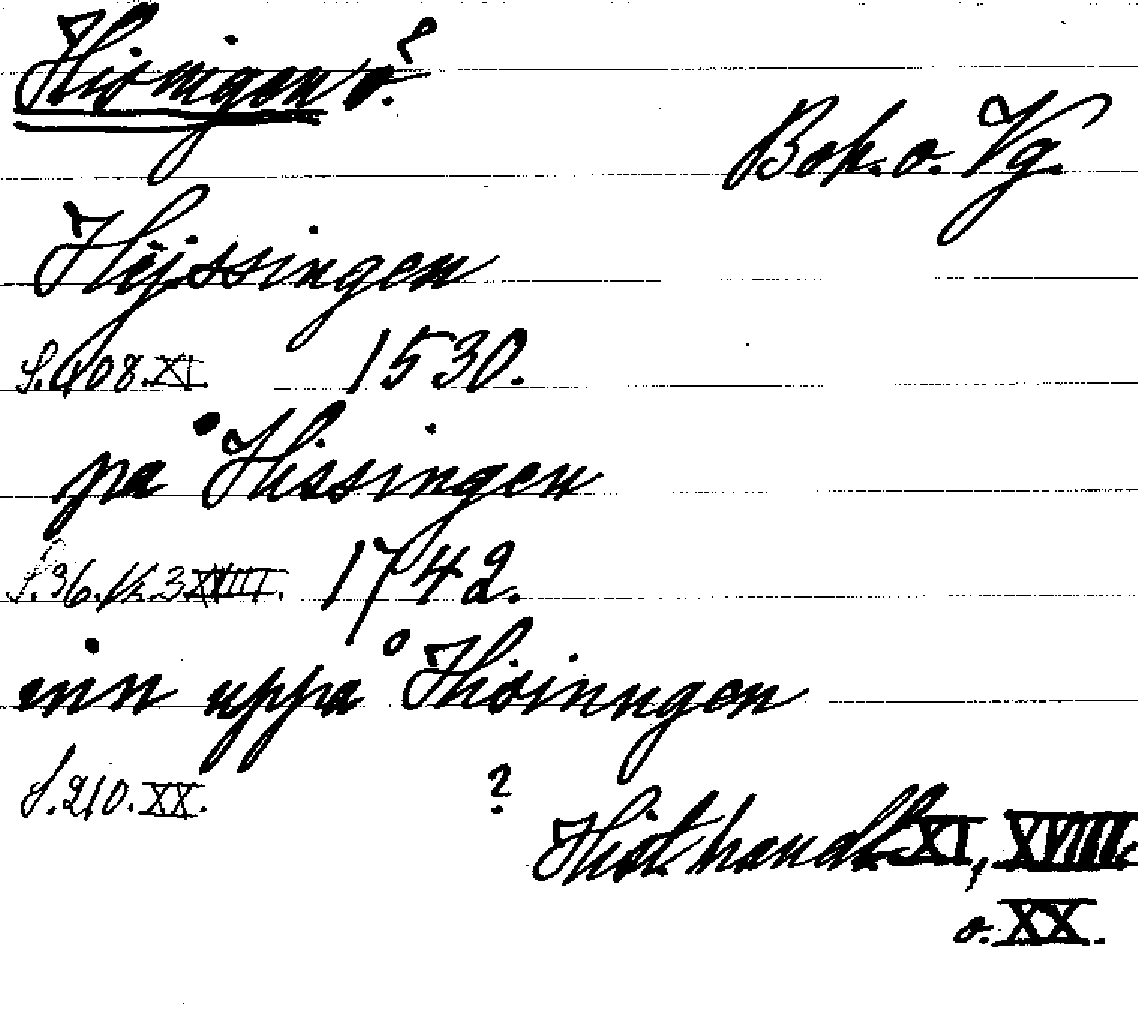 Hisingen ö.
Boh. o. Vg.
Hÿssingen
S. 408. XI. 1530.
på Hissingen
S. 36. h. 3 XVIII. 1742.
inn uppå Hisinngen
S. 210. XX. ?
Hist. handl. XI, XVIII.
o. XX.